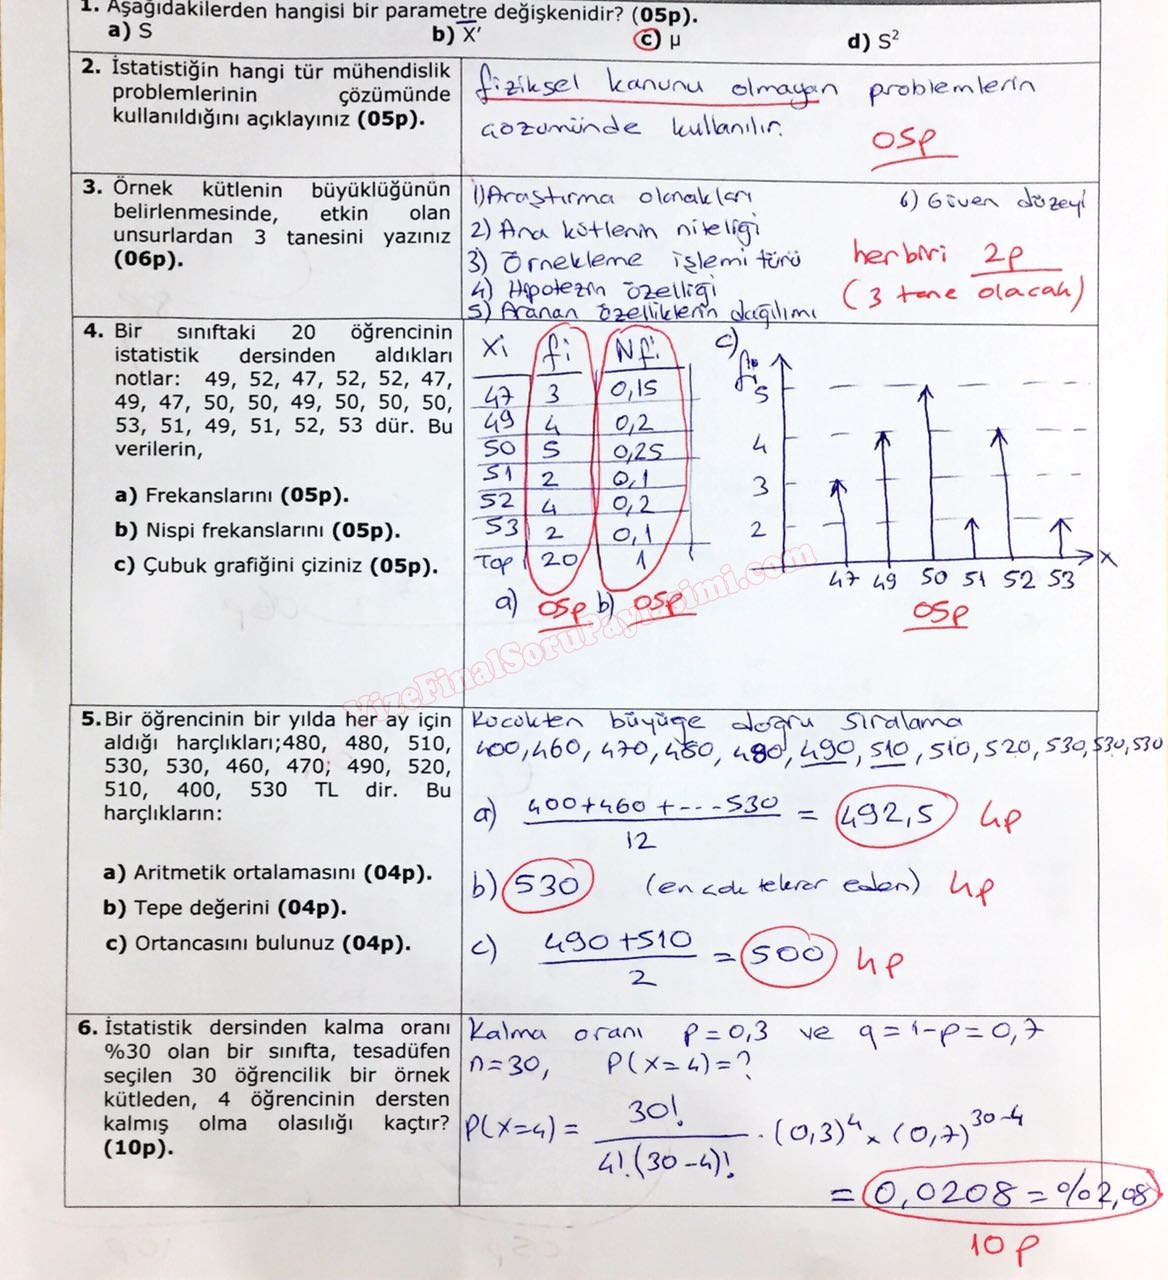 1. Aşağıdakilerden hangisi bir parametre değişkenidir? (05p).
a) S b) X̅' c) μ d) S²
2. İstatistiğin hangi tür mühendislik
problemlerinin çözümünde
kullanıldığını açıklayınız (05p).
fiziksel kanunu olmayan problemlerin
çözümünde kullanılır.
05p
3. Örnek kütlenin büyüklüğünün
belirlenmesinde, etkin olan
unsurlardan 3 tanesini yazınız
(06p).
1) Araştırma olanakları
2) Ana kütlenin niteliği
3) Örnekleme işlemi türü
4) Hipotezin özelliği
5) Aranan özelliklerin dağılımı
6) Güven düzeyi
herbiri 2p
(3 tane olacak)
4. Bir sınıftaki 20 öğrencinin
istatistik dersinden aldıkları
notlar: 49, 52, 47, 52, 52, 47,
49, 47, 50, 50, 49, 50, 50, 50,
53, 51, 49, 51, 52, 53 dür. Bu
verilerin,
a) Frekanslarını (05p).
b) Nispi frekanslarını (05p).
c) Çubuk grafiğini çiziniz (05p).
Xi fi Nfi
47 3 0,15
49 4 0,2
50 5 0,25
51 2 0,1
52 4 0,2
53 2 0,1
Top 20 1
a) 05p b) 05p
c)
fi
5
4
3
2
47 49 50 51 52 53 X
05p
VizeFinalSoruPaylasimi.com
5. Bir öğrencinin bir yılda her ay için
aldığı harçlıkları;480, 480, 510,
530, 530, 460, 470; 490, 520,
510, 400, 530 TL dir. Bu
harçlıkların:
a) Aritmetik ortalamasını (04p).
b) Tepe değerini (04p).
c) Ortancasını bulunuz (04p).
Küçükten büyüğe doğru sıralama
400, 460, 470, 480, 480, 490, 510, 510, 520, 530, 530, 530
a) 400+460+---530 / 12 = 492,5 4p
b) 530 (en çok tekrar eden) 4p
c) 490+510 / 2 = 500 4p
6. İstatistik dersinden kalma oranı
%30 olan bir sınıfta, tesadüfen
seçilen 30 öğrencilik bir örnek
kütleden, 4 öğrencinin dersten
kalmış olma olasılığı kaçtır?
(10p).
Kalma oranı p=0,3 ve q=1-p=0,7
n=30, P(X=4)=?
P(X=4) = 30! / 4!.(30-4)! . (0,3)⁴ x (0,7)³⁰⁻⁴
= 0,0208 = %2,08
10p